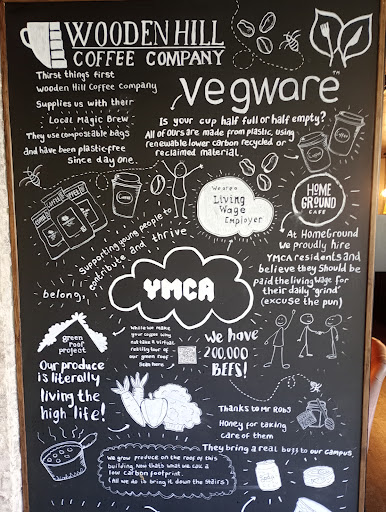 WOODEN HILL
COFFEE COMPANY
Thirst things first
Wooden Hill Coffee Company
Supplies us with their
Local Magic Brew
They use compostable bags
and have been plastic-free
since day one.
vegware™
Is your cup half full or half empty?
All of ours are made from plastic, using
renewable lower carbon recycled or
reclaimed material.
Supporting young people to
contribute and thrive
belong,
We are a
Living
Wage
Employer
HOME
GROUND
CAFE
At HomeGround
We proudly hire
YMCA residents and
believe they should be
paid the living wage for
their daily "grind"
(excuse the pun)
YMCA
green
roof
project
Our produce
is literally
living the
high life!
While we make
your coffee why
not take a virtual
reality tour of
our green roof
Scan here
We have
200,000
BEES!
Thanks to Mr Robs
Honey for taking
care of them
They bring a real buzz to our campus.
We grow produce on the roof of this
building. Now thats what we call a
low carbon footprint.
(All we do is bring it down the stairs)